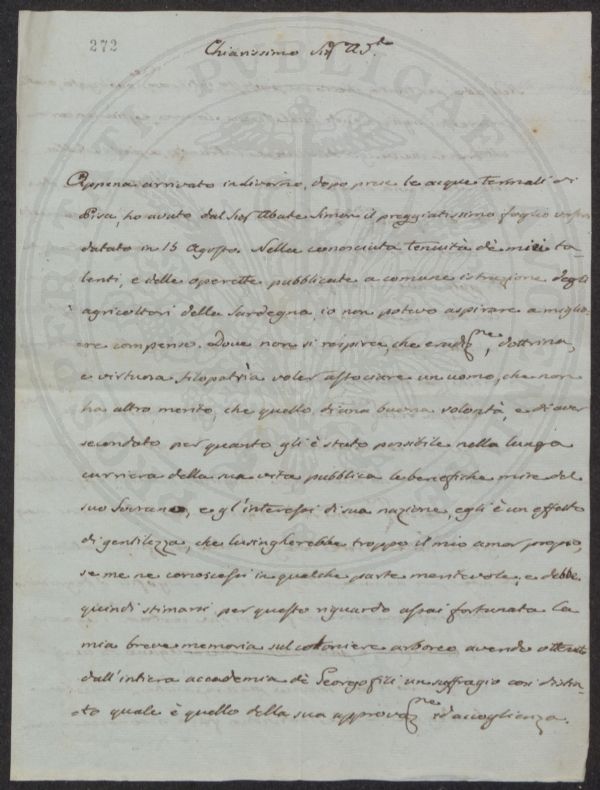 272
Chiarissimo Sigr
Appena arrivato in Livorno, dopo prese le acque termali di
Pisa, ho avuto dal Sigr Abate Simon il preggiatissimo foglio
datato in 15 Agosto. Nella conosciuta tenuità de' miei ta-
lenti, e delle operette pubblicate a comune istruzione degli
agricoltori della Sardegna, io non potevo aspirare a miglio-
re compenso. Dove non si respira, che erudizne, dottrina,
e virtuosa filopatrìa voler associare un uomo, che non
ha altro merito, che quello di una buona volontà, e di aver
secondato per quanto gli è stato possibile nella lunga
carriera della sua vita pubblica le benefiche mire del
suo Sovrano, e gl'interessi di sua nazione, egli è un effetto
di gentilezza, che lusingherebbe troppo il mio amor proprio,
se me ne conoscessi in qualche parte meritevole, e debbe
quindi stimarsi per questo riguardo assai fortunata la
mia breve memoria sul cotoniere arboreo avendo ottenuto
dall'intiera accademia de' Georgofili un suffragio così distin-
to quale è quello della sua approvazne ed accoglienza.
PROSPERITATI PUBLICAE